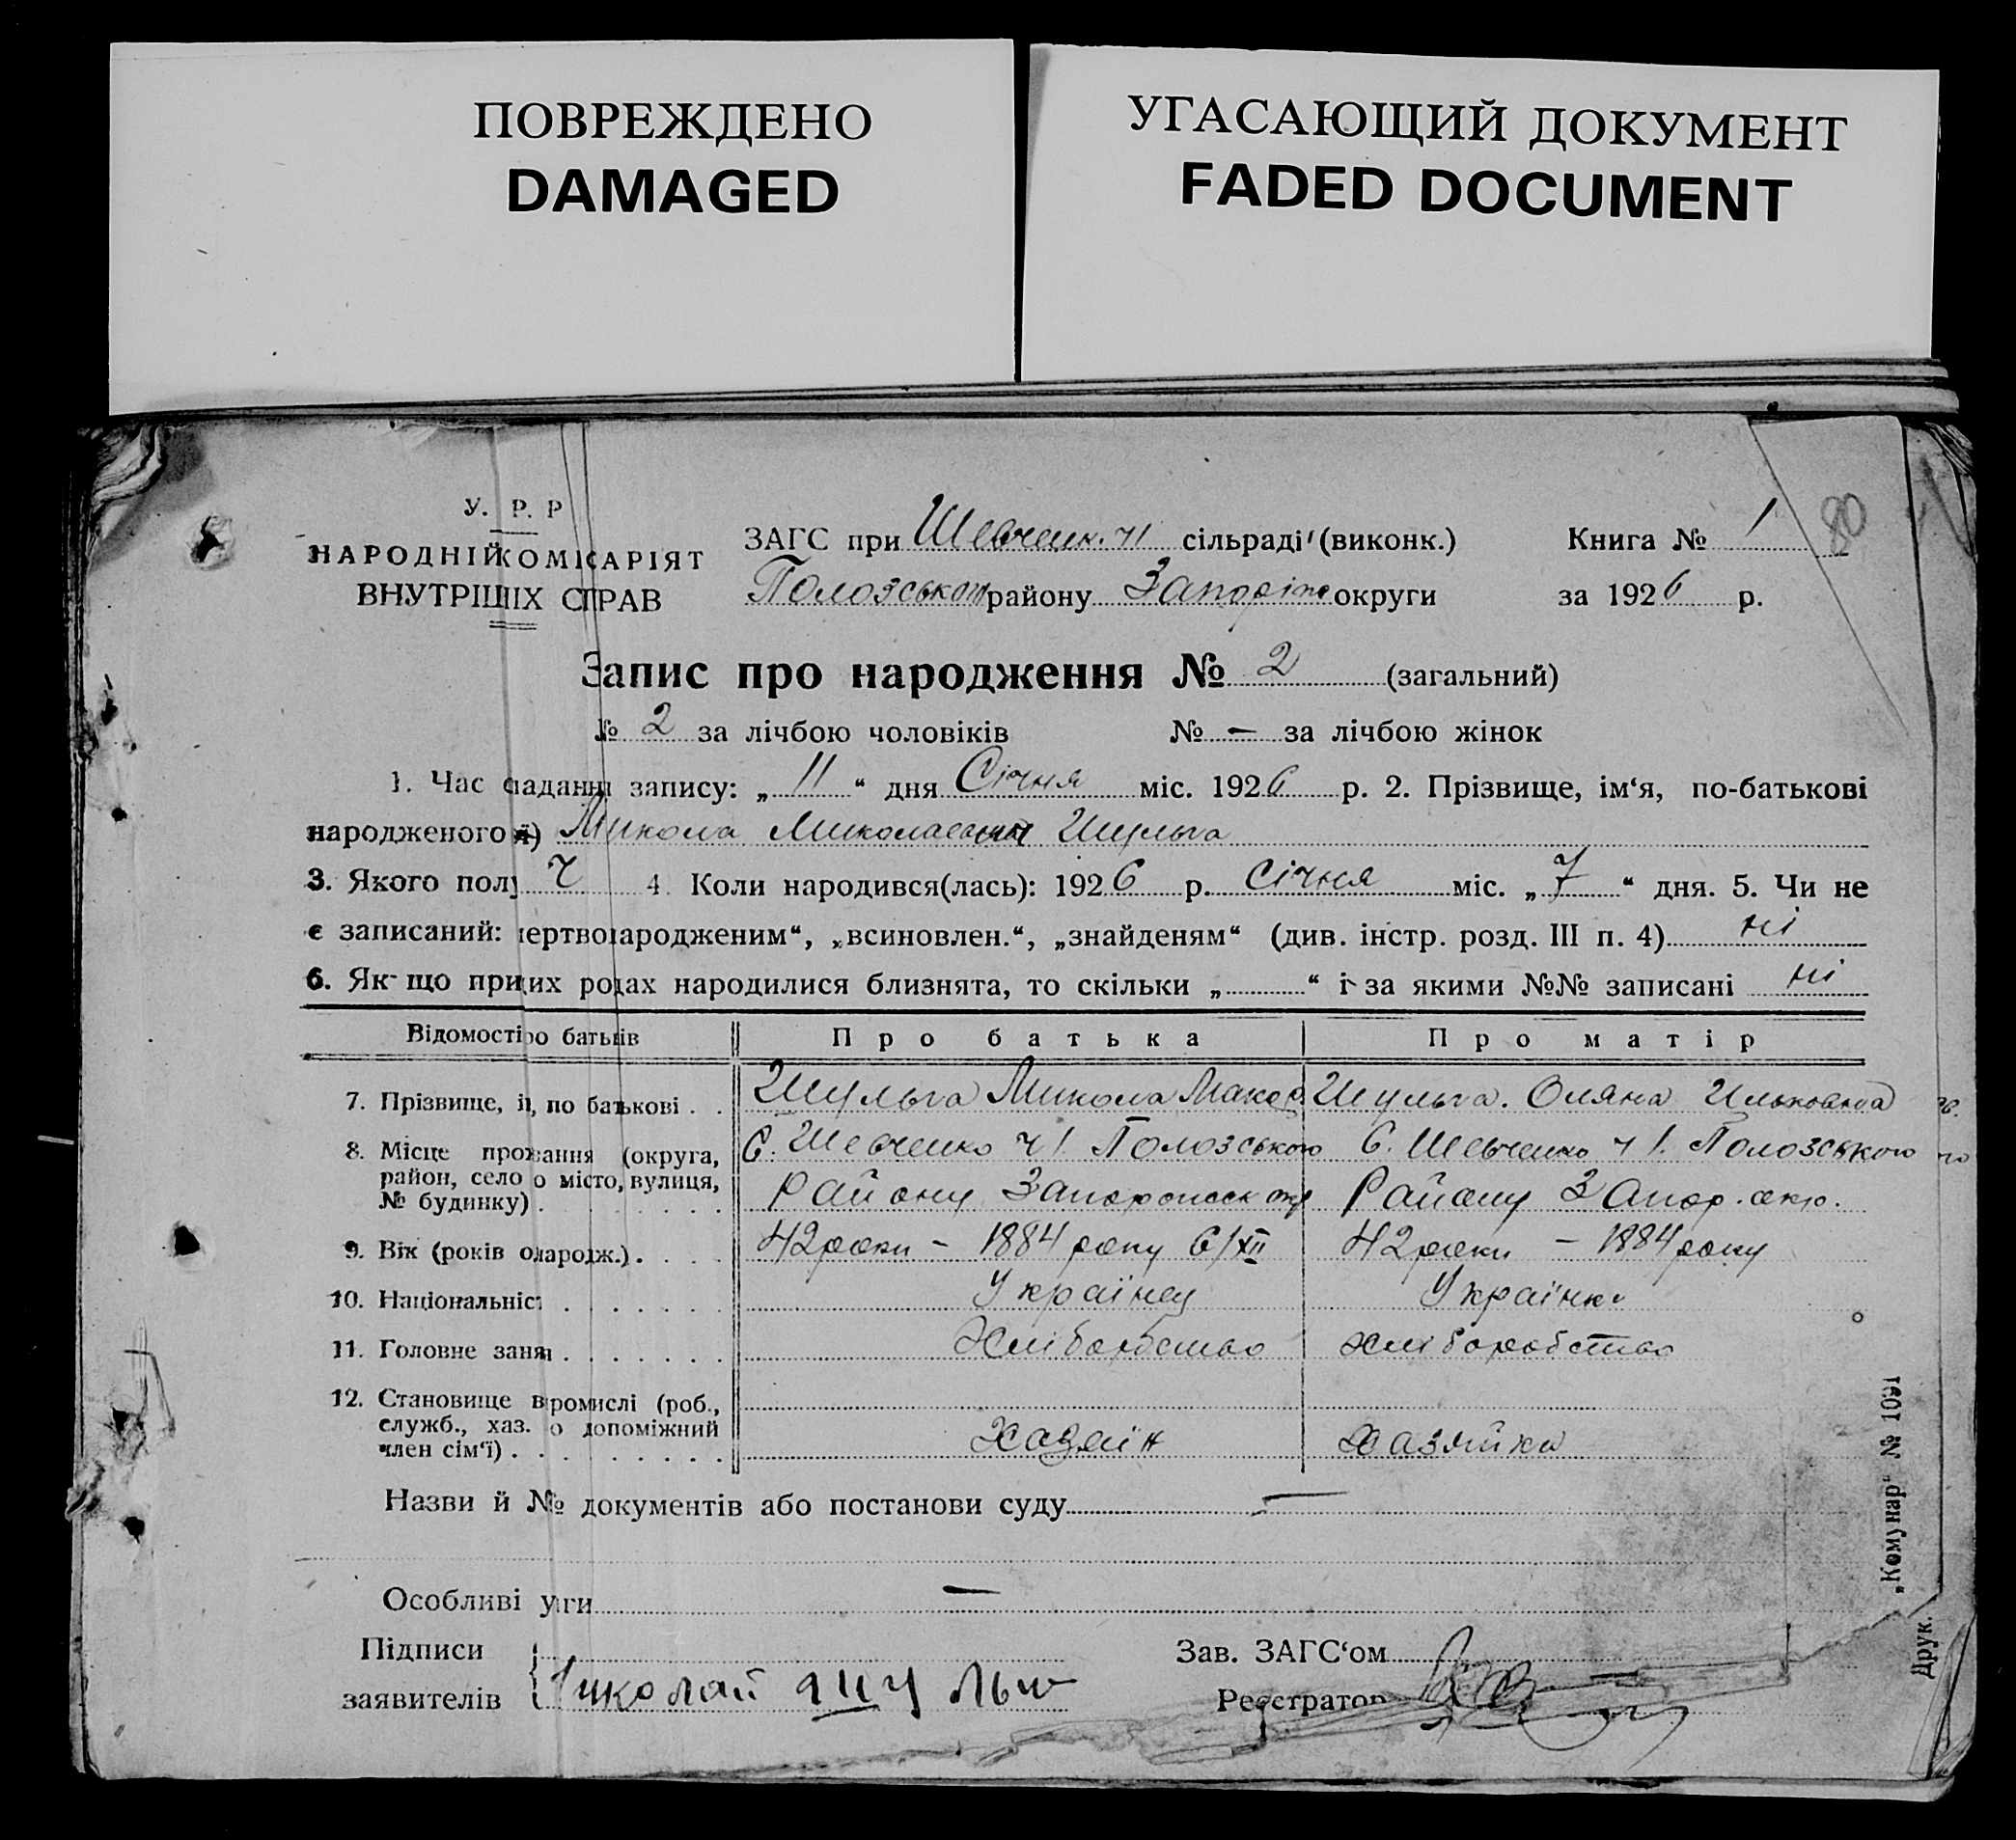 ПОВРЕЖДЕНО
DAMAGED
УГАСАЮЩИЙ ДОКУМЕНТ
FADED DOCUMENT
80
У. Р. Р
НАРОДНІЙ КОМІСАРІЯТ
ВНУТРІШІХ СПРАВ
ЗАГС при Шевченк. ч 1 сільраді (виконк.)
Книга № 1
Полозського району Запоріж округи
за 1926 р.
Запис про народження № 2 (загальний)
№ 2 за лічбою чоловіків № — за лічбою жінок
1. Час складання запису: „ 11 “ дня Січня міс. 1926 р. 2. Прізвище, ім‘я, по-батькові
народженого ї) Микола Миколаевич Шульга
3. Якого полу ч 4. Коли народився(лась): 1926 р. січня міс. „ 7 “ дня. 5. Чи не
є записаний: мертвонародженим“, „всиновлен.“, „знайденям“ (див. інстр. розд. III п. 4) ні
6. Як що при цих родах народилися близнята, то скільки „ “ і за якими №№ записані ні
Відомості про батьків Про батька Про матір
7. Прізвище, ім, по батькові . . Шульга Микола Макар Шульга. Оляна Ильковна
8. Місце прожвання (округа, С. Шевченко ч 1 Полозського С. Шевченко ч 1. Полозського
район, село о місто, вулиця,
№ будинку) . Району Запорожск окр Району Запор. окр.
9. Вік (років о народж.) . 42 роки – 1884 року 6/XII 42 роки – 1884 року
10. Національніст . Українец Українка
11. Головне занят . Хліборобство хліборобство
12. Становище в промислі (роб.,
служб., хаз. о допоміжний
член сім‘ї) . Хазяїн Хазяйка
Назви й № документів або постанови суду —
Особливі уваги —
Підписи
заявителів Николай Шульга
Зав. ЗАГС‘ом
Реєстратор
Друк. „Комунар“ № 1091